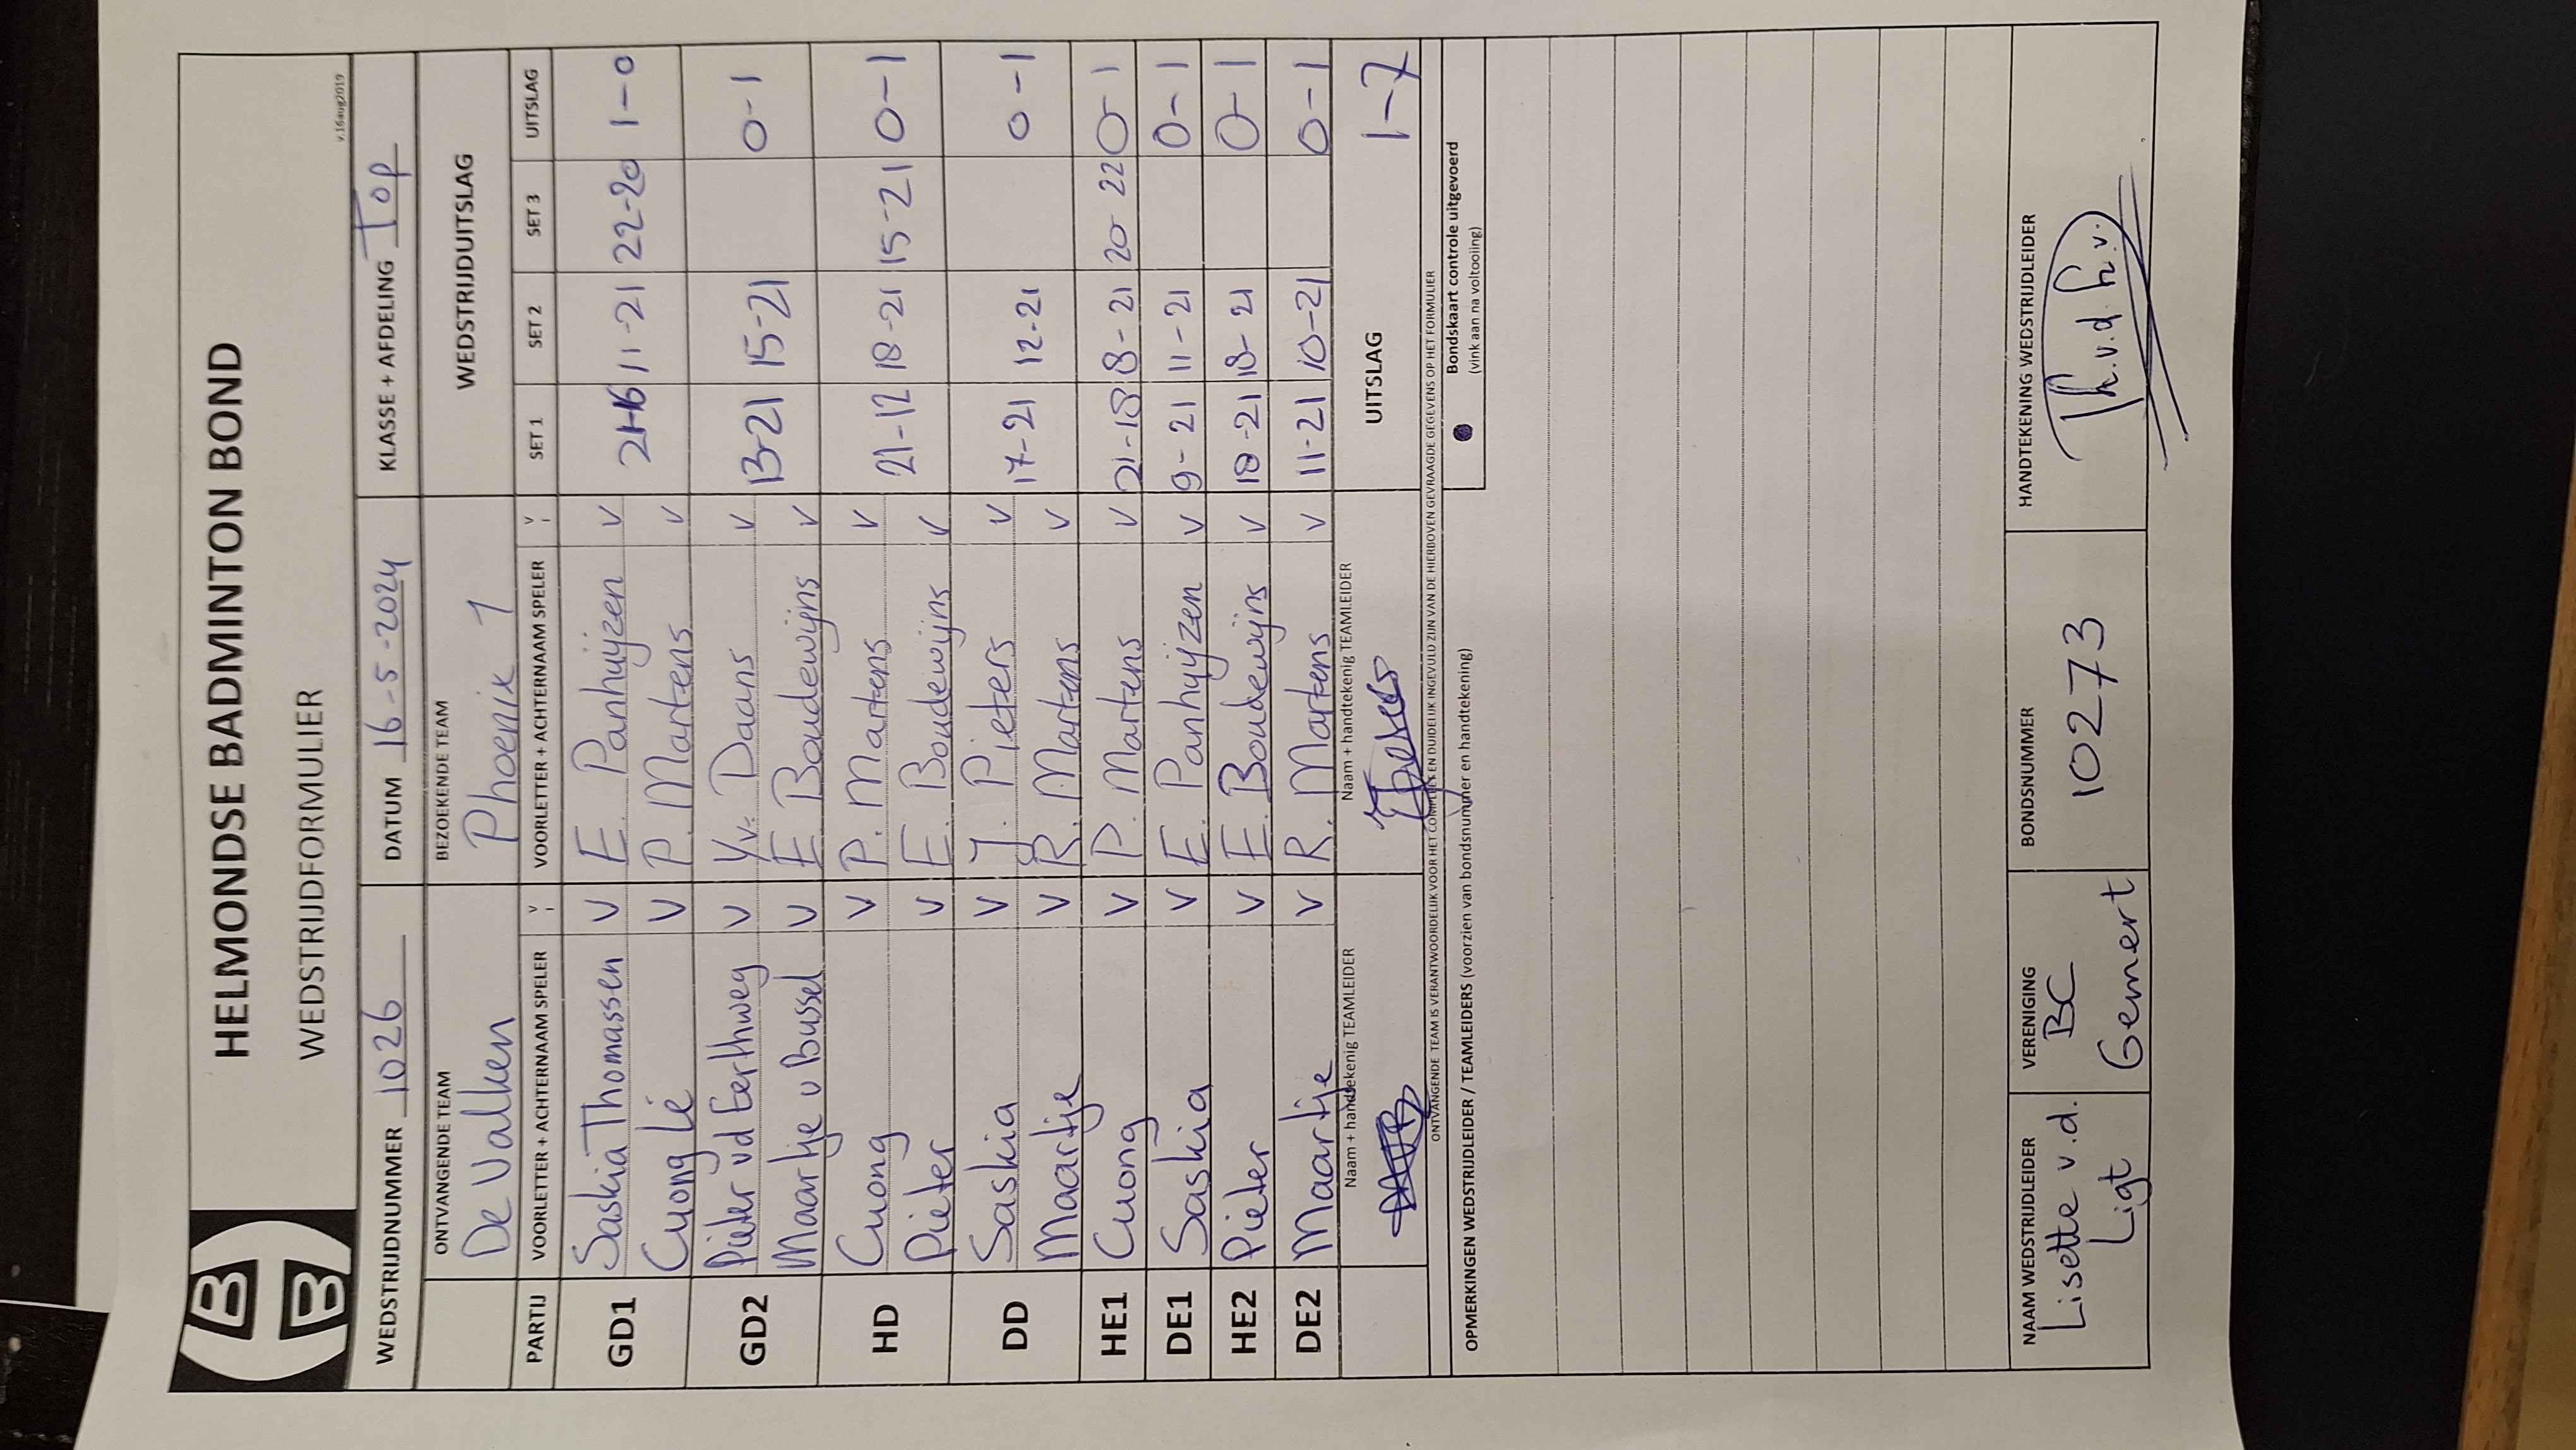 HELMONDSE BADMINTON BOND
WEDSTRIJDFORMULIER
v.16aug2019
WEDSTRIJDNUMMER 1026 DATUM 16-5-2024 KLASSE + AFDELING Top
ONTVANGENDE TEAM BEZOEKENDE TEAM WEDSTRIJDUITSLAG
De Valken Phoenix 1
PARTIJ VOORLETTER + ACHTERNAAM SPELER V VOORLETTER + ACHTERNAAM SPELER V SET 1 SET 2 SET 3 UITSLAG
GD1 Saskia Thomassen V E. Panhuijzen V 21-16 11-21 22-20 1-0
Cuong Lé V P. Martens V
GD2 Pieter vd Eerthweg V Yv. Daans V 13-21 15-21 0-1
Maartje v Bussel V E Boudewijns V
HD Cuong V P. Martens V 21-12 18-21 15-21 0-1
Pieter V E. Boudewijns V
DD Saskia V Y. Pieters V 17-21 12-21 0-1
Maartje V R. Martens V
HE1 Cuong V P. Martens V 21-18 8-21 20-22 0-1
DE1 Saskia V E. Panhuijzen V 9-21 11-21 0-1
HE2 Pieter V E. Boudewijns V 18-21 18-21 0-1
DE2 Maartje V R. Martens V 11-21 10-21 0-1
Naam + handtekenig TEAMLEIDER Naam + handtekenig TEAMLEIDER UITSLAG 1-7
ONTVANGENDE TEAM IS VERANTWOORDELIJK VOOR HET COMPLEET EN DUIDELIJK INGEVULD ZIJN VAN DE HIERBOVEN GEVRAAGDE GEGEVENS OP HET FORMULIER
Bondskaart controle uitgevoerd
(vink aan na voltooiing)
OPMERKINGEN WEDSTRIJDLEIDER / TEAMLEIDERS (voorzien van bondsnummer en handtekening)
NAAM WEDSTRIJDLEIDER VERENIGING BONDSNUMMER HANDTEKENING WEDSTRIJDLEIDER
Lisette v.d. BC 10273
Ligt Gemert